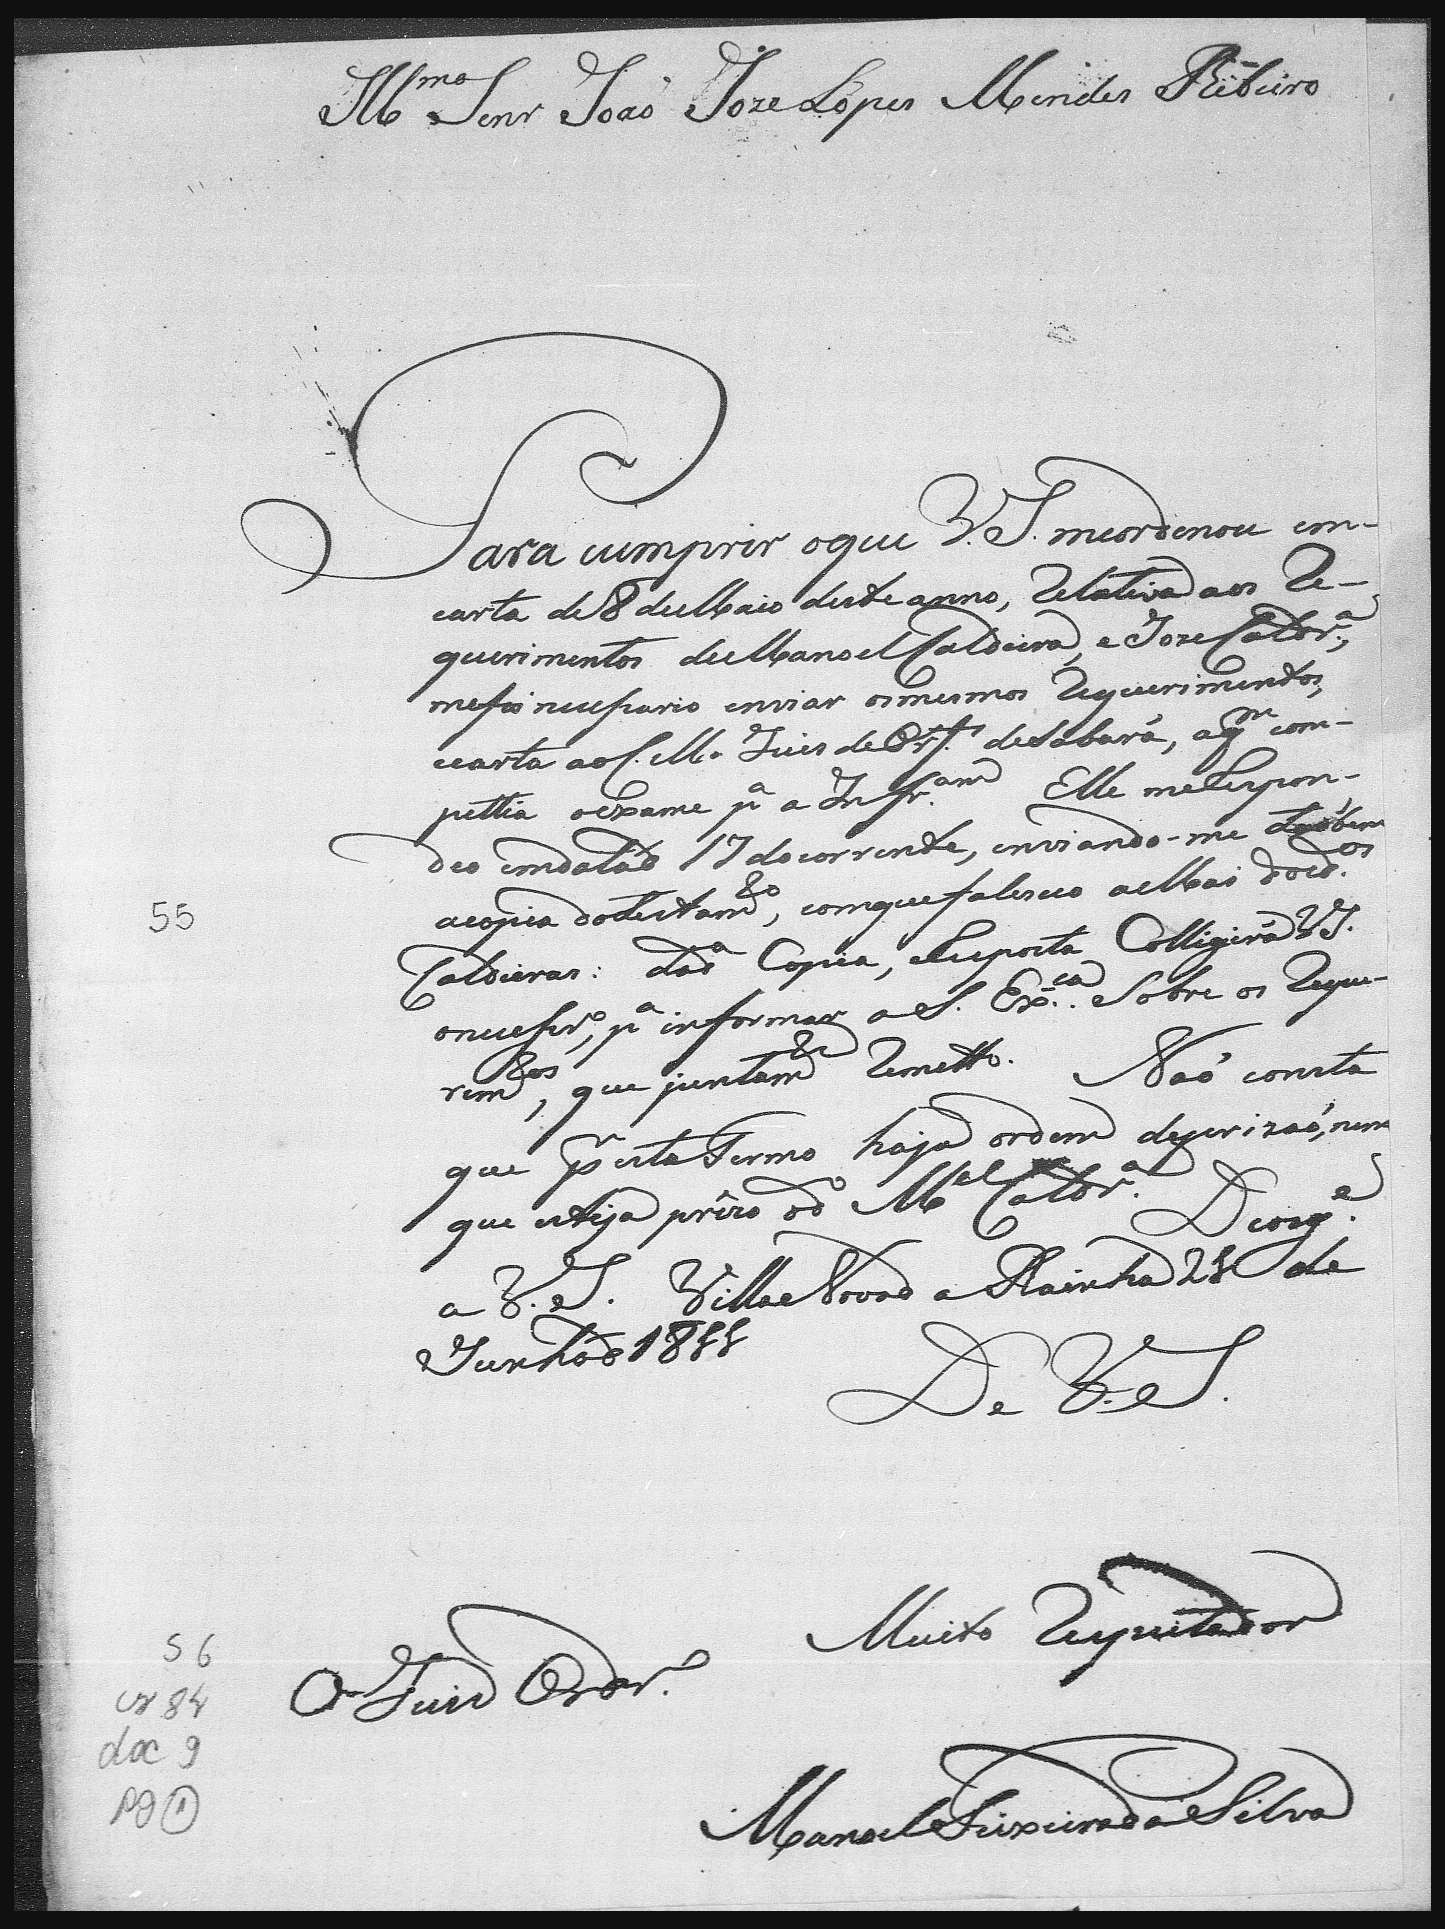 Ill.mo Senr João Joze Lopes Mendes Ribeiro
Para cumprir oque V. S. meordenou em-
carta de 8 deMaio deste anno, Relativa aos Re-
querimentos deManoel Caldeira, e Joze Caldr.a,
mefoi necessario enviar osmesmos Requerimentos,
ecarta ao C. M. Juis de desabará, aq.m com-
pettia oexame p.a a Inf Elle meRespon-
deo emdata de 17 docorrente, enviando-me
acopia dotestam.to, comquefalesceo aMai dosd.os
Caldeiras: dad.a Copia, eResposta Colligirá V. S.
onecessr.o, p.a informar a S. Ex.ca Sobre os Reque-
rim.tos, que juntam.te Remetto. Não consta
que p.r esteTermo haja ordem deprizaõ, nem
que esteja prezo od.o M.el Caldr.a. Deosg.e
a V. S. Villa Nova da Rainha 28 de
Junho de 1811
De V. S.
Muito Respeitador
O Juis Ordr.o
Manoel Teixeira da Silva
55
56
cx 84
doc 9
pg 1